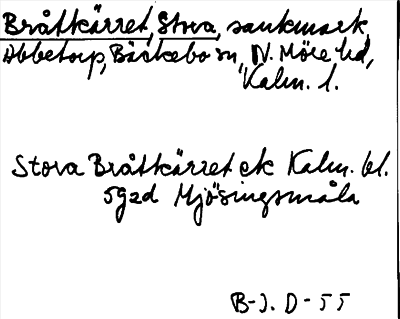 Bråttkärret, Stora, sankmark,
Abbetorp, Bäckebo sn, N. Möre hd,
Kalm. l.
Stora Bråttkärret ek Kalm. bl.
5g2d Mjösingsmåla
B-J. D-55